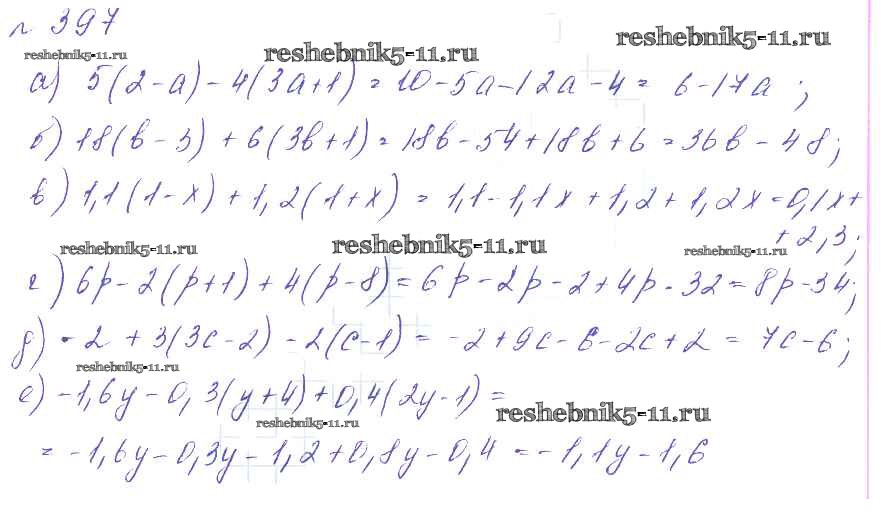 № 397
reshebnik5-11.ru reshebnik5-11.ru reshebnik5-11.ru
а) 5(2-a) - 4(3a+1) = 10-5a-12a-4 = 6-17a;
б) 18(b-3) + 6(3b+1) = 18b-54+18b+6 = 36b-48;
в) 1,1(1-x) + 1,2(1+x) = 1,1-1,1x+1,2+1,2x=0,1x+
+2,3;
reshebnik5-11.ru reshebnik5-11.ru reshebnik5-11.ru
г) 6p-2(p+1)+4(p-8)=6p-2p-2+4p-32=8p-34;
д) -2 + 3(3c-2) - 2(c-1) = -2+9c-6-2c+2 = 7c-6;
reshebnik5-11.ru
е) -1,6y-0,3(y+4)+0,4(2y-1) =
reshebnik5-11.ru reshebnik5-11.ru
= -1,6y-0,3y-1,2+0,8y-0,4 = -1,1y-1,6